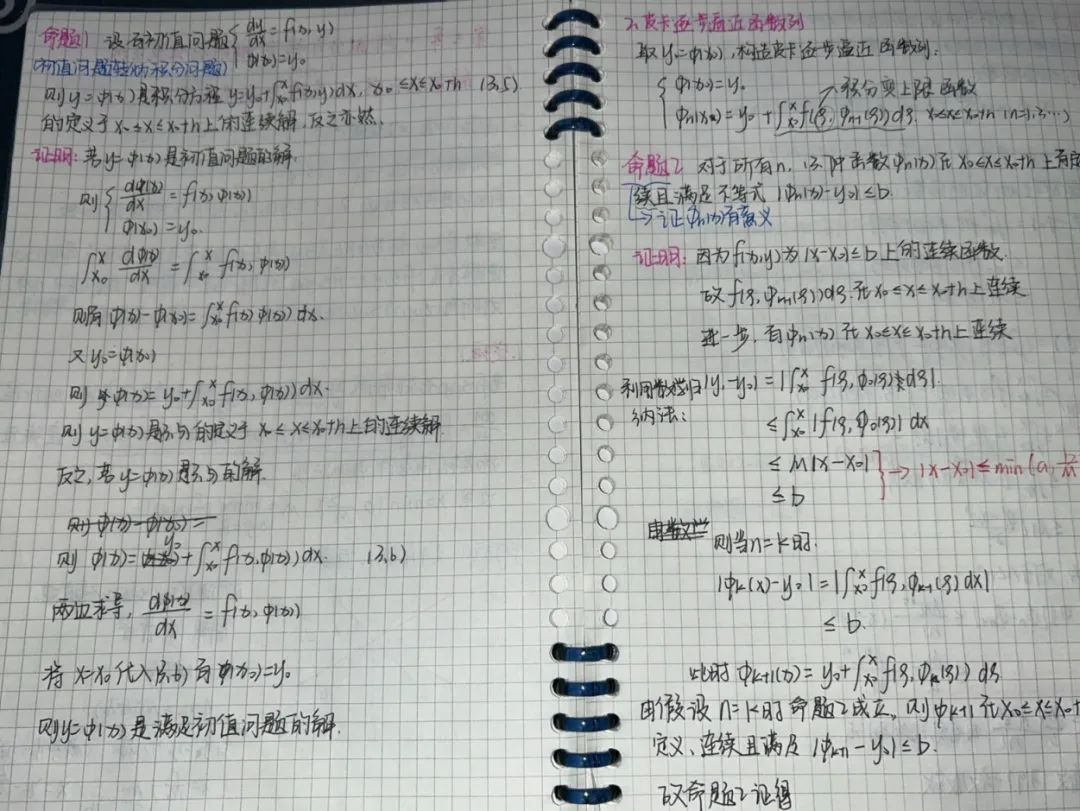 命题1 设有初值问题{dy/dx = f(x, y)
φ(x₀)=y₀
(初值问题转为积分问题)
则y=φ(x)是积分方程 y=y₀+∫_{x₀}^{x} f(x,y)dx, x₀≤x≤x₀+h (3,5)
的定义于 x₀≤x≤x₀+h上的连续解,反之亦然.
证明: 若y=φ(x)是初值问题的解.
则{dφ(x)/dx = f(x, φ(x))
φ(x₀)=y₀.
∫_{x₀}^{x} dφ(x)/dx = ∫_{x₀}^{x} f(x, φ(x))
则有 φ(x)-φ(x₀)=∫_{x₀}^{x} f(x, φ(x))dx.
又y₀=φ(x₀)
则 φ(x)= y₀+∫_{x₀}^{x} f(x, φ(x))dx.
则y=φ(x)是3,5的定义于 x₀≤x≤x₀+h上的连续解
反之,若y=φ(x)是3,5的解.
则 φ(x)-φ(x₀)=
则 φ(x)= y₀+∫_{x₀}^{x} f(x, φ(x))dx. (3,6)
两边求导, dφ(x)/dx = f(x, φ(x))
将 x=x₀代入(3,6)有φ(x₀)=y₀
则y=φ(x)是满足初值问题的解.
2.皮卡逐步逼近函数列
取y₀=φ(x₀),构造皮卡逐步逼近函数列:
{φ(x₀)=y₀ →积分变上限函数
φn(x)= y₀+∫_{x₀}^{x} f(ξ, φn-1(ξ))dξ, x₀≤x≤x₀+h (n=1,2,…)
命题2 对于所有n, (3,7)中函数φn(x)在x₀≤x≤x₀+h上有定
续且满足不等式 |φn(x)-y₀|≤b.
→证φn(x)有意义
证明: 因为f(x,y)为|x-x₀|≤b上的连续函数.
故f(ξ, φn-1(ξ))dξ.在x₀≤x≤x₀+h上连续
进一步,有φn(x)在x₀≤x≤x₀+h上连续
利用数学归 |y₁-y₀| = |∫_{x₀}^{x} f(ξ, φ₀(ξ))dξ|.
纳法: ≤∫_{x₀}^{x} |f(ξ, φ₀(ξ))| dx
≤ M|x-x₀| } → |x-x₀|≤min(a, b/M
≤ b
则当n=k时.
|φk(x)-y₀| = |∫_{x₀}^{x} f(ξ, φk-1(ξ)dx|
≤ b.
此时 φk+1(x)= y₀+∫_{x₀}^{x} f(ξ, φk(ξ))dξ
由假设n=k时命题2成立,则φk+1在x₀≤x≤x₀+
定义、连续且满足 |φk+1-y₀|≤b.
故命题2证得